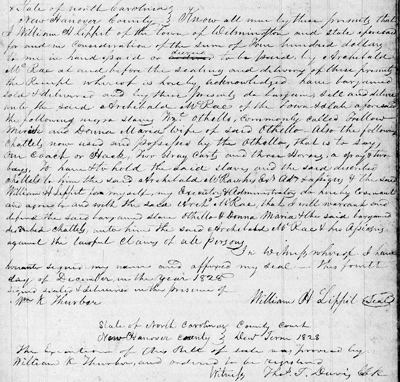 State of North Carolina
New Hanover County } Know all men by these presents that
I William H Lippit of the Town of Wilmington and state aforesaid
for and in Consideration of the sum of Four hundred dollars
to me in hand paid or to be paid by Archibald
McRae at and before the sealing and delivery of these presents
the receipt whereof is duly acknowledged have bargained
sold & delivered and by these presents do bargain sell and deliver
unto the said Archibald McRae of the Town & state aforesaid
the following negro slaves Viz Othello, Commonly called Fellow
and Donna Maria wife of said Othello Also the following
Chattels now used and possessed by the Othello, that is to say
One Coach or Hack, Two Gray Carts and three Horses, a gray & two
bays. To have & to hold the said slaves and the said described
chattels to him the said Archibald McRae his & assigns & the said
William H Lippit for myself, my Executors & Administrators do hereby Covenant
and agree to and with the said Archd McRae, that I will warrant and
defend the said bargained slaves Othello & Donna Maria & the said bargained
described Chattels, unto him the said Archibald McRae & his Assigns
against the lawful Claims of all Persons
In Witness whereof I have
hereunto signed my name and affixed my seal — This fourth
day of December in the year 1828
signed sealed & delivered in the presence of
Wm K Thurber William H Lippit (Seal)
State of North Carolina County Court
New Hanover County } Decr Term 1828
The Execution of this Bill of sale was proved by
William K Thurber, and ordered to be registered
Witness Thos. F. Davis Clk